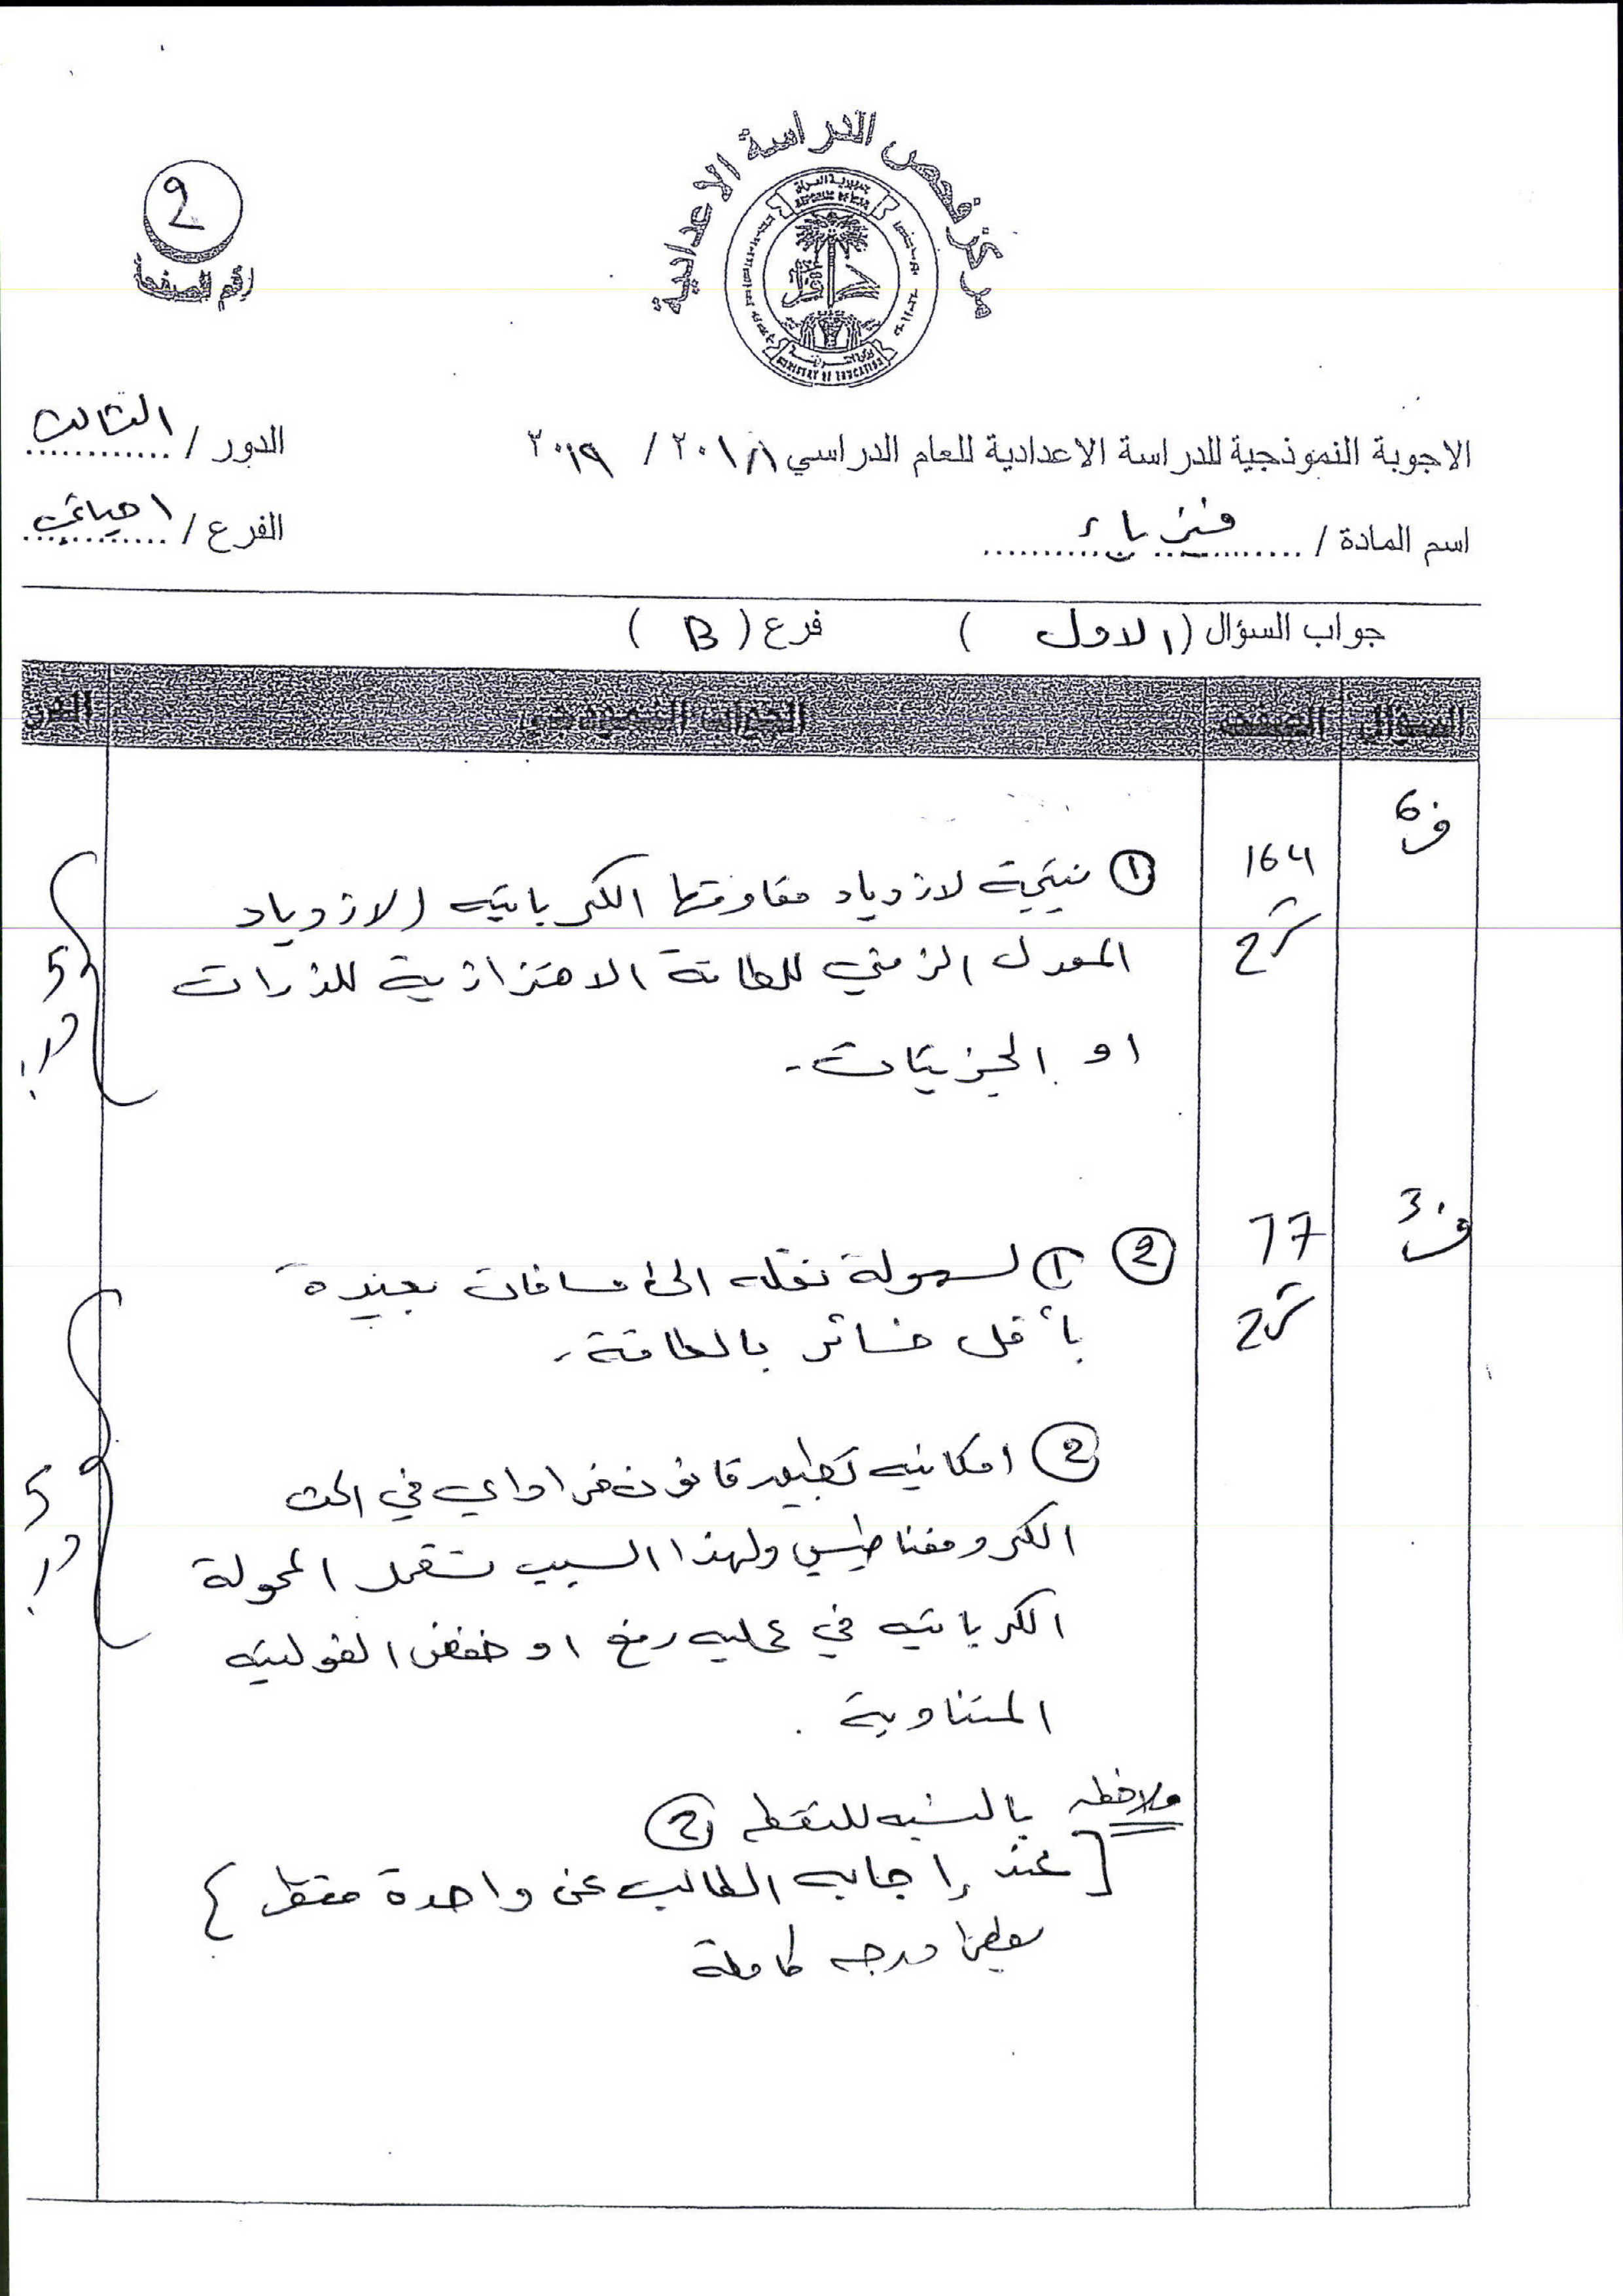 مركز فحص الدراسة الاعدادية
جمهورية العراق
MINISTRY OF EDUCATION
2
رقم الصفحة
الاجوبة النموذجية للدراسة الاعدادية للعام الدراسي ٢٠١٨ / ٢٠١٩
الدور / الثالث
اسم المادة / فيزياء
الفرع / احيائي
جواب السؤال (الاول) فرع (B)
السؤال الصفحة الجواب النموذجي
ف6
164
① نتيجة لازدياد مقاومتها الكهربائيه (لازدياد
المعدل الزمني للطاقة الاهتزازية للذرات
او الجزيئات.
5
ف3
77
② ① لسهولة نقله الى مسافات بعيدة
بأقل خسائر بالطاقة.
② امكانيه تطبيق قانون فراداي في الحث
الكهرومغناطيسي ولهذا السبب تستعمل المحولة
الكهربائيه في عمليه رفع او خفض الفولتيه
المتناوبة.
5
ملاحظه بالنسبه للنقطه ②
[عند إجابه الطالب عن واحدة فقط}
يعطى درجه كاملة